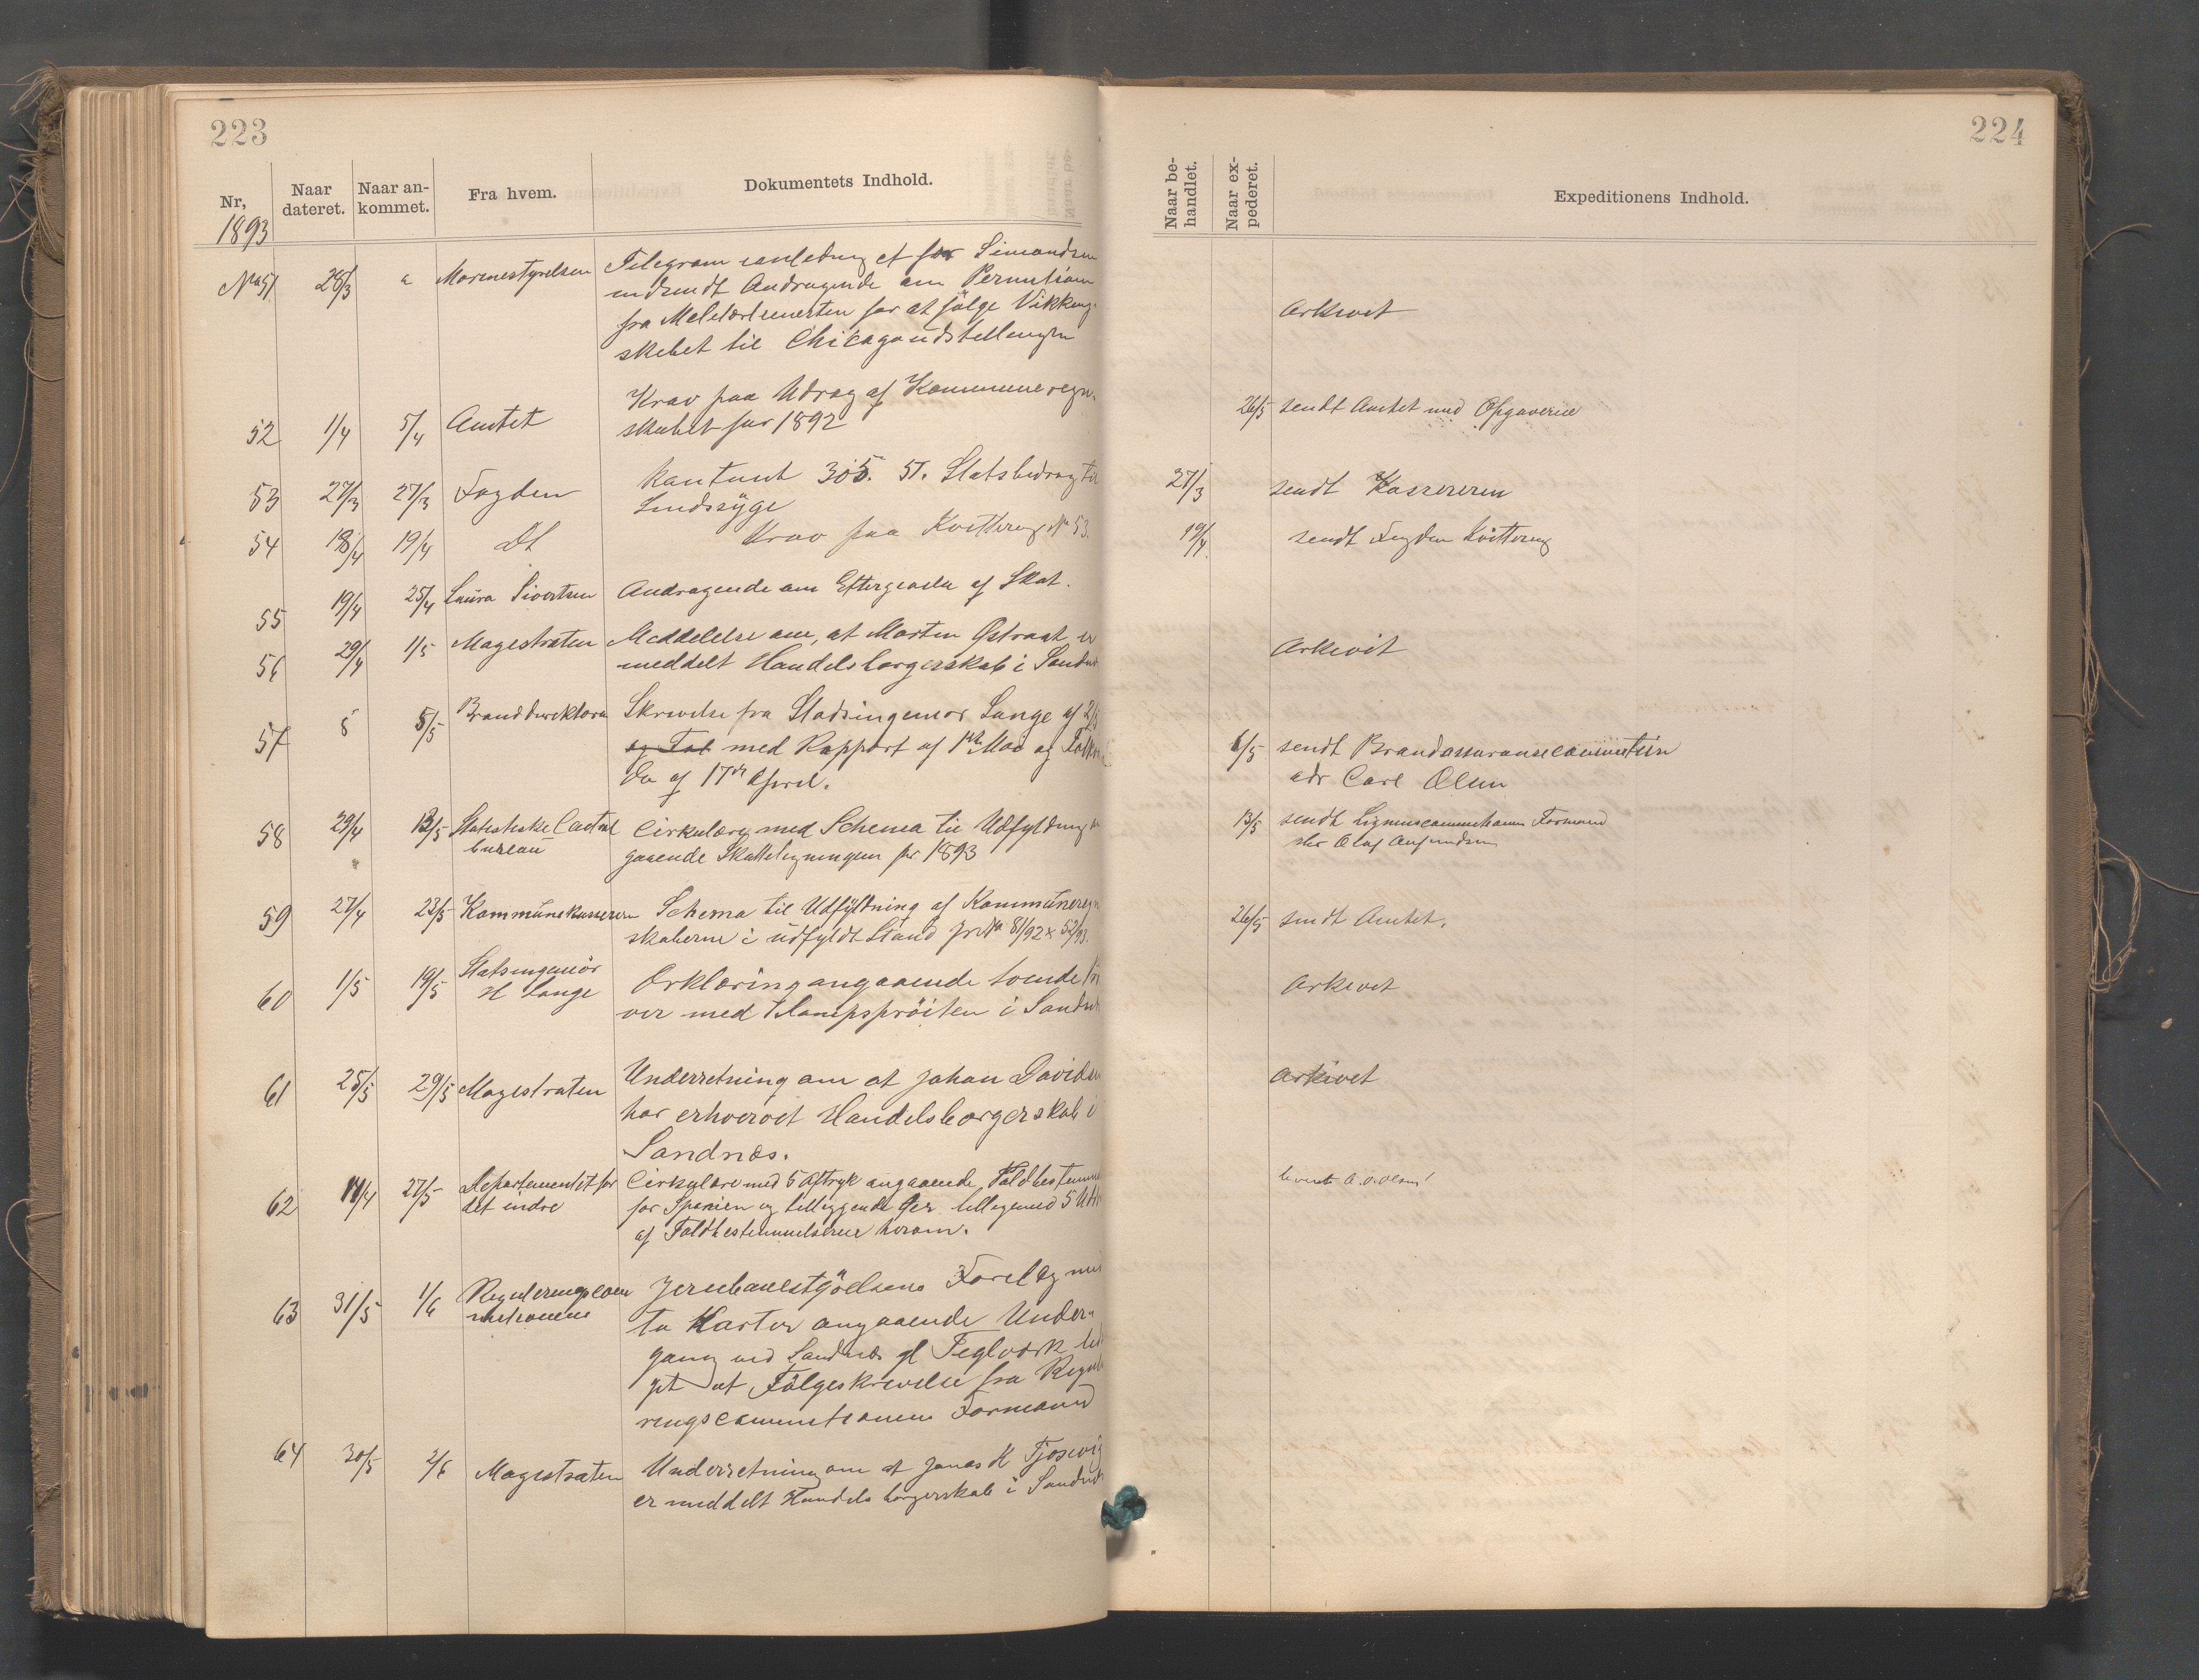 223
Nr,
Naar dateret.
Naar an-kommet.
Fra hvem.
Dokumentets Indhold.
1893
No 51 28/3 Marinestyrelsen Telegram et for Simondsen
indsendt Andragende om Permission
fra for at følge Vikking
skibet til Chicagoudstillingen
52 1/4 5/4 Amtet Krav paa Udrag af Kommuneregn-
skabet for 1892
53 27/3 27/3 Fogden kontant 305. 51. Statsbidrag til
Sindssÿge
54 18/4 19/4 Dt Krav paa Kvittering No 53.
55 19/4 25/4 Laura Sivertsen Andragende om Eftergivelse af Skat.
56 29/4 1/5 Magistraten Meddelelse om, at Morten Østraat er
meddelt Handelsborgerskab i Sandnæs
57 5 5/5 Branddirektøren Skrivelse fra Stadsingeniør Lange af 2/5
og Fal med Rapport af 1ste Mai og
Do af 17de April.
58 29/4 13/5 Statistiske Central Cirkulære med Schema til Udfyldning an
bureau gaaende Skatteligningen for 1893
59 27/4 23/5 Kommunekassereren Schema til Udfÿldning af Kommuneregn
skaberne i udfyldt Stand jvr No 81/92 x 52/93.
60 1/5 19/5 Statsingeniør Erklæring angaaende tvende
H Lange ver med Dampsprøiten i Sandnæs
61 25/5 29/5 Magistraten Underretning om at Johan Davidsen
har erhvervet Handelsborgerskab i
Sandnæs.
62 14/4 27/5 Departementet for Cirkulære med 5 Aftryk angaaende Toldbestemmel
det indre for Spanien og tilliggende Øer tilligemed 5
af Toldbestemmelserne herom.
63 31/5 1/6 Reguleringscom Jernbanestyrelsens Forelæg med
missionen to Karter angaaende Under-
gang ved Sandnæs gl Teglværk
get af Følgeskrivelse fra Regule
ringscommissionens Formand
64 30/5 2/6 Magistraten Underretning om at Jonas H Tjosevig
er meddelt Handelsborgerskab i Sandnæs
224
Naar be-handlet.
Naar ex-pederet.
Expeditionens Indhold.
Arkivet
26/5 sendt Amtet med Opgaverne
27/3 sendt Kassereren
19/4 sendt Fogden kvittering
Arkivet
6/5 sendt Brandassurancecommission
adr Carl Olsen
13/5 sendt Ligningscommissionens Formand
Hr Olaf
26/5 sendt Amtet.
Arkivet
Arkivet
leveret A. O. Olsen